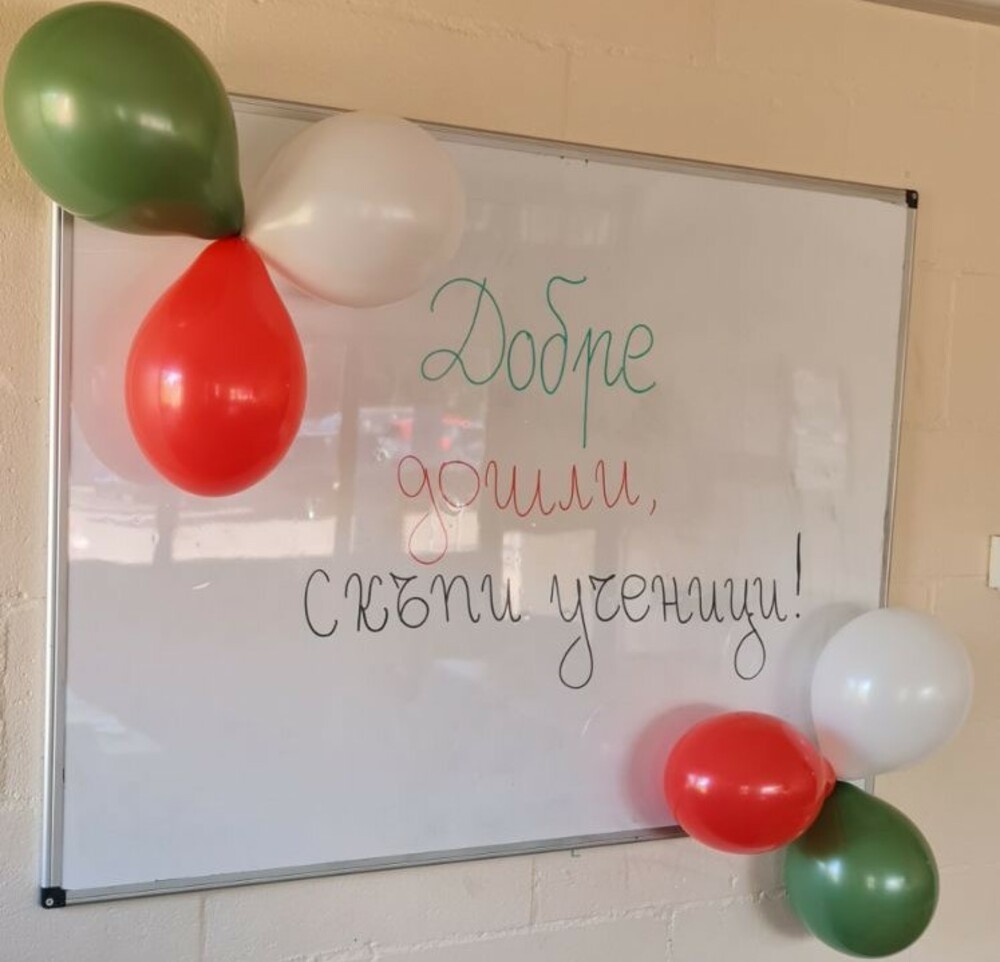 Добре
дошли,
скъпи ученици!